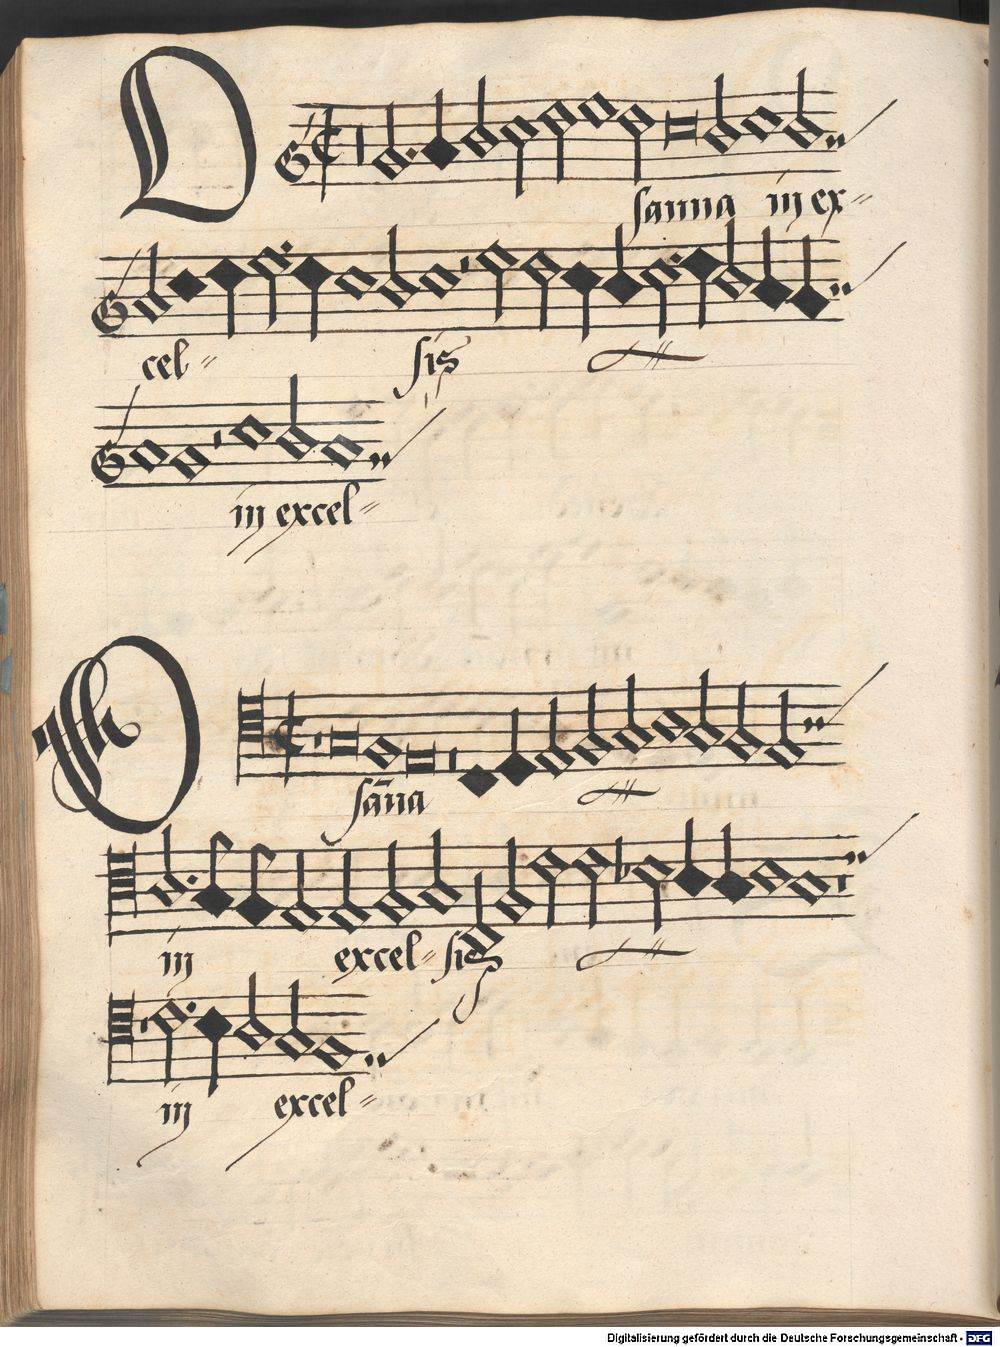 O
sanna in ex=
cel= sis
in excel=
O
san̄a
in excel= sis
in excel=
Digitalisierung gefördert durch die Deutsche Forschungsgemeinschaft - DFG